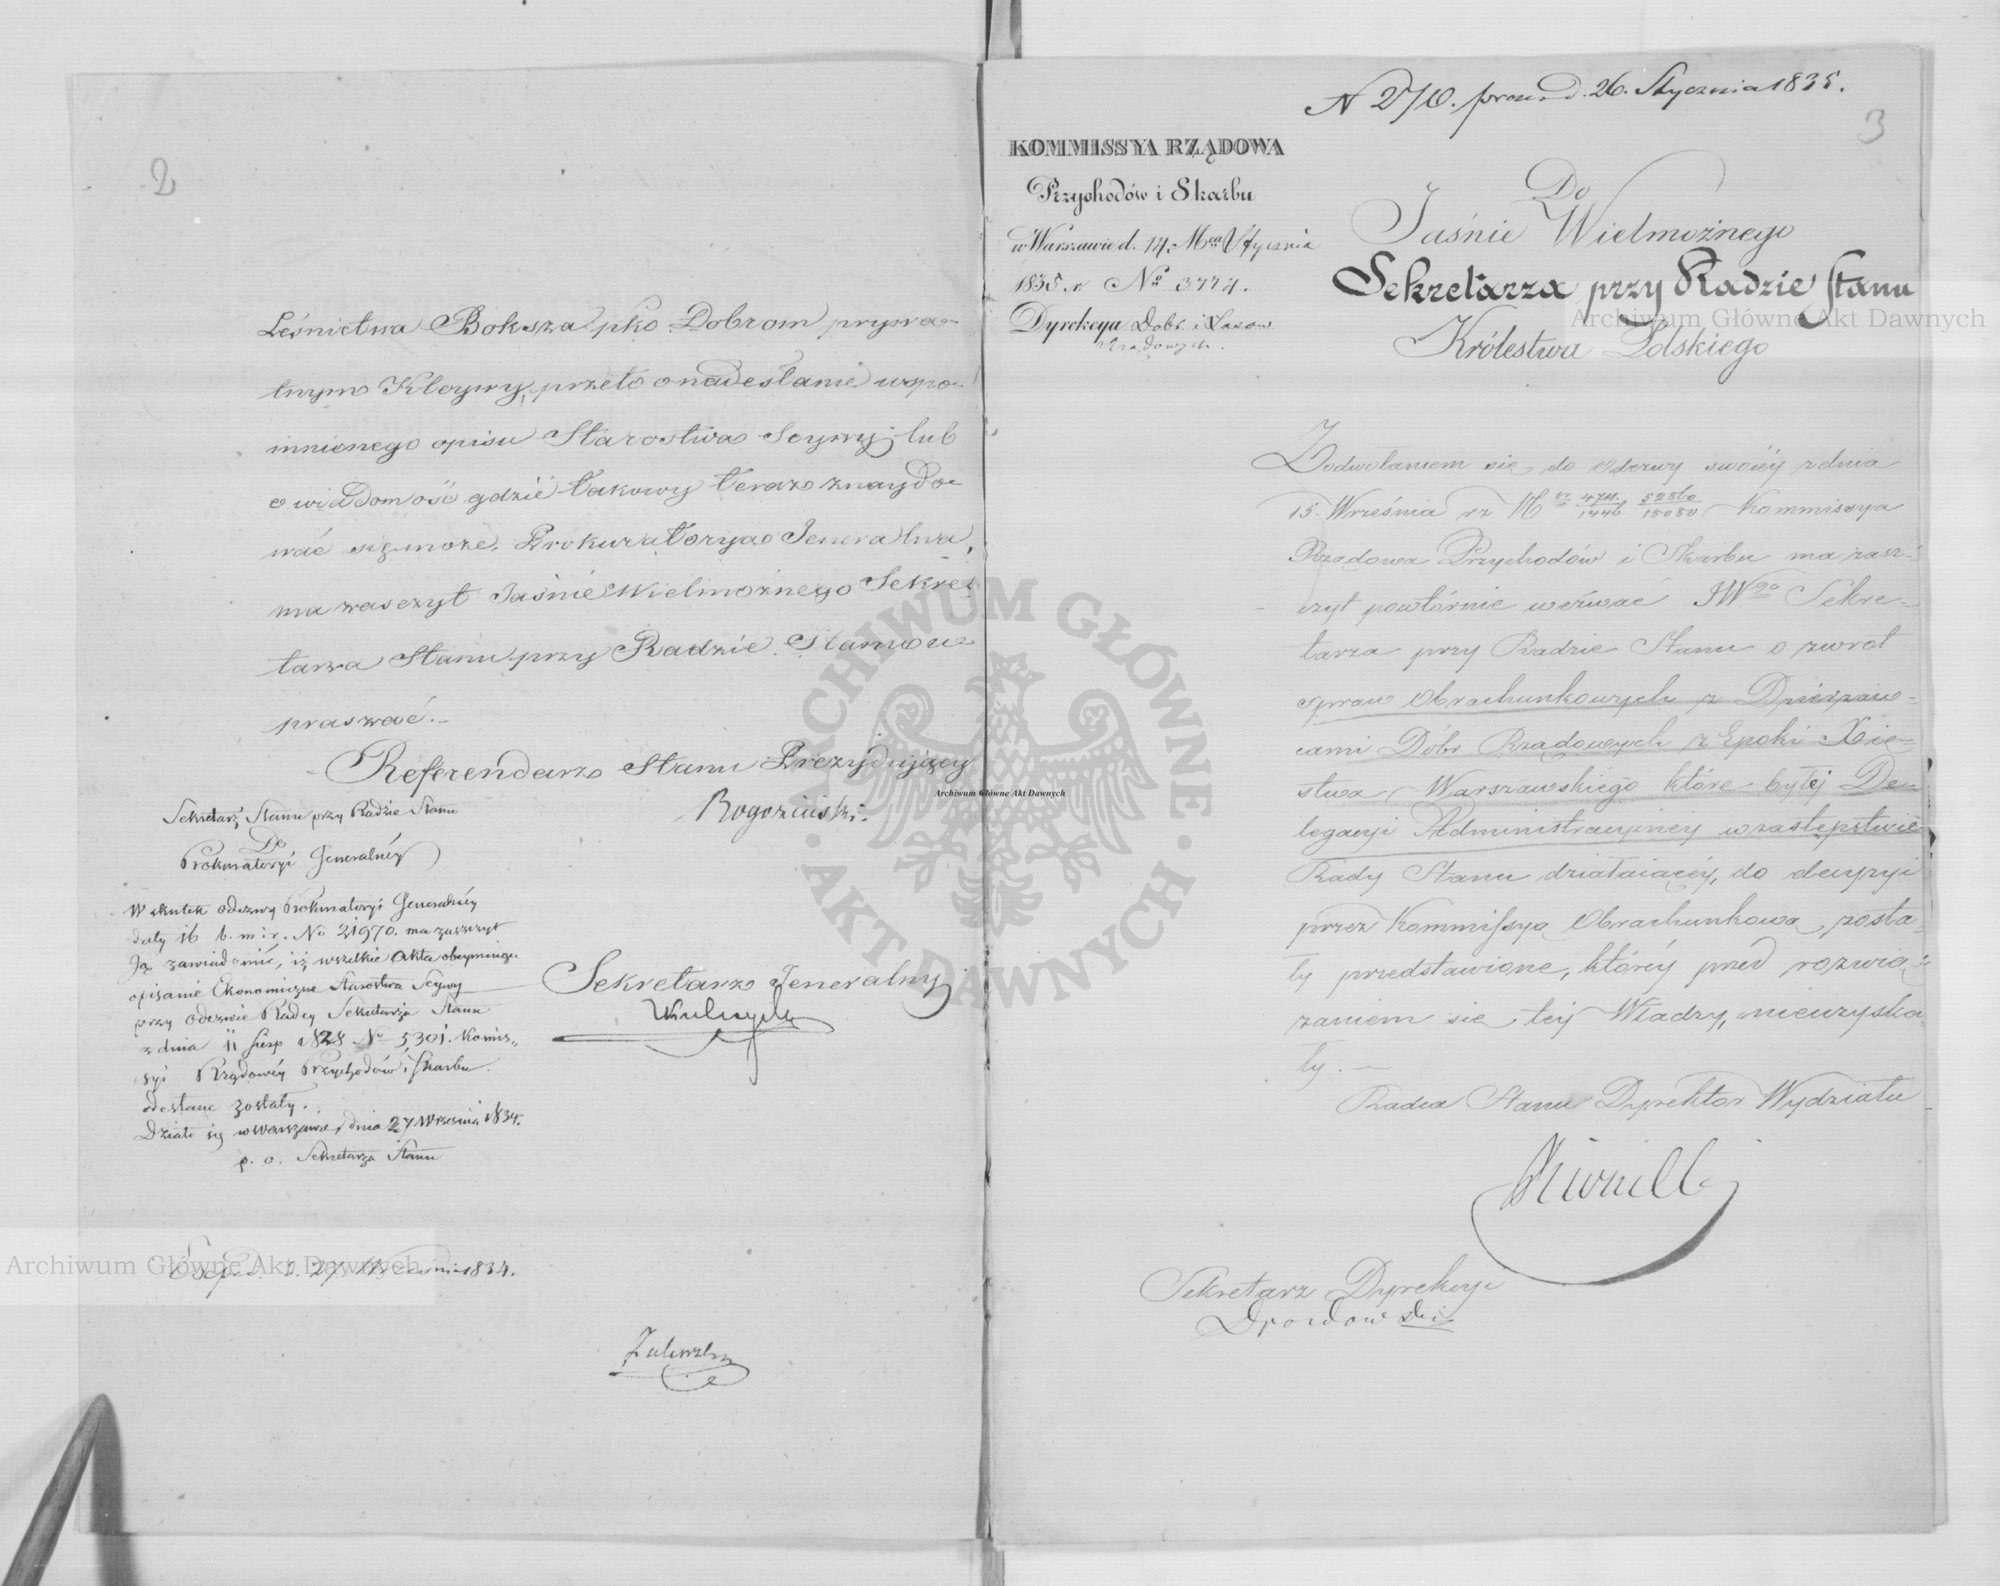 2
Leśnictwa Boksza pko Dobrom prywa-
tnym Kłoywy, przeto o nadesłanie wspo-
mnionego opisu Starostwa Seywy lub
o wiadomość gdzie takowy teraz znaydo-
wać się może, Prokuratorya Jeneralna,
ma zaszczyt Jaśnie Wielmożnego Sekre-
tarza Stanu przy Radzie Stanu u-
praszać.-
Referendarz Stanu Prezydujący
Rogoziński
Sekretarz Jeneralny
Sekretarz Stanu przy Radzie Stanu
Do
Prokuratoryi Generalnéy
W skutek odezwy Prokuratoryi Generalnéy
daty 16 b. m. i r. No 21970. ma zaszczyt
Ją zawiadomić, iż wszelkie Akta obeymujące
opisanie Ekonomiczne Starostwa Seywy
przy odezwie Radcy Sekretarza Stanu
z dnia 11 Sierp 1828 No 5301. Komis-
syi Rządowéy Przychodów i Skarbu
odesłane zostały.
Działo się w Warszawie, dnia 27 Września 1834.
p. o. Sekretarza Stanu
d. 27 Września 1834.
N 270. prez. d. 26. Stycznia 1835.
3
KOMMISSYA RZĄDOWA
Przychodów i Skarbu
w Warszawie d. 14. Mca Stycznia
1835. r. No 3774.
Dyrekcya Dóbr i Lasów
Rządowych.
Do
Jaśnie Wielmożnego
Sekretarza przy Radzie Stanu
Królestwa Polskiego
Z odwołaniem się do odezwy swoiéy z dnia
15 Września rz Nr 47411/1446 52860/15080 Kommissya
Rządowa Przychodów i Skarbu ma zasz-
czyt powtórnie wezwać JWgo Sekre-
tarza przy Radzie Stanu o zwrot
spraw Obrachunkowych z Dzierżaw-
cami Dóbr Rządowych z Epoki Xię-
stwa Warszawskiégo które byłéj De-
legacyi Administracyjnéy w zastępstwie
Rady Stanu działaiącéy, do decyzyi
przez Kommissyą Obrachunkową zosta-
ły przedstawione, któréy przed rozwią-
zaniem się téj Władzy, nieuzyska-
ły.
Radca Stanu Dyrektor Wydziału
Sekretarz Dyrekcyi
Archiwum Główne Akt Dawnych
Archiwum Główne Akt Dawnych
Archiwum Główne Akt Dawnych
ARCHIWUM GŁÓWNE
AKT DAWNYCH